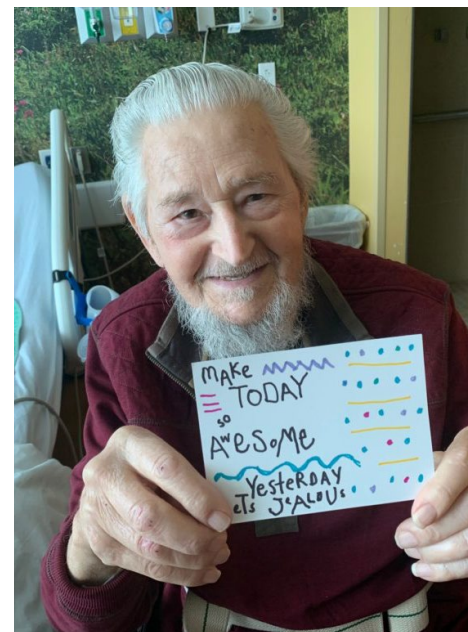 MAKE
TODAY
so
AWESOME
YesteRDAY
eTs JeALOUs